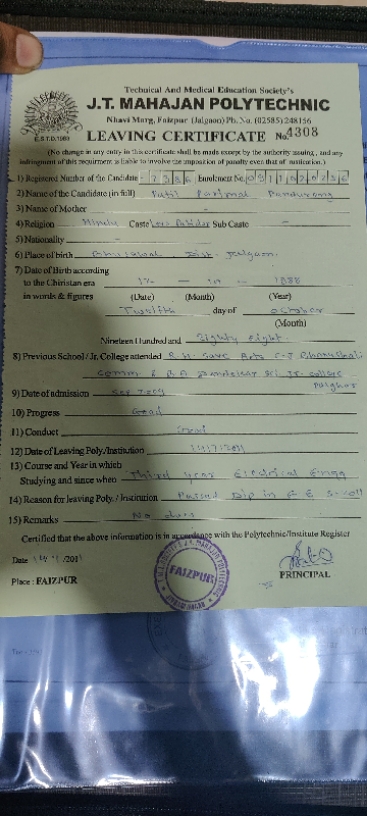 Technical And Medical Education Society's
J.T. MAHAJAN POLYTECHNIC
Nhavi Marg, Faizpur (Jalgaon) Ph. No. (02585) 248156
LEAVING CERTIFICATE No. 4308
(No change in any entry in this certificate shall be made except by the authority issuing, and any
infringment of this requirment is liable to involve the imposition of penalty even that of rustication.)
1) Registered Number of the Candidate - 2386 Enrolment No.
2) Name of the Candidate (in full) Patil Parimal Pandurang
3) Name of Mother
4) Religion Hindu Caste Leva Patidar Sub Caste -
5) Nationality -
6) Place of birth Bhusawal Dist. Jalgaon.
7) Date of Birth according
to the Chiristan era 12 - 10 - 1988
in words & figures (Date) (Month) (Year)
Twelfth day of october
(Month)
Nineteen Hundred and Eighty eight
8) Previous School / Jr. College attended Save Arts
Comm & Sci Jr. college
Palghar
9) Date of admission
10) Progress Good
11) Conduct Good
12) Date of Leaving Poly./Institution
13) Course and Year in which
Studying and since when Third year Electrical Engg
14) Reason for leaving Poly. / Institution Passed Dip in
15) Remarks No dues
Certified that the above information is in accordance with the Polytechnic/Institute Register
Date /2011
Place : FAIZPUR
FAIZPUR
PRINCIPAL